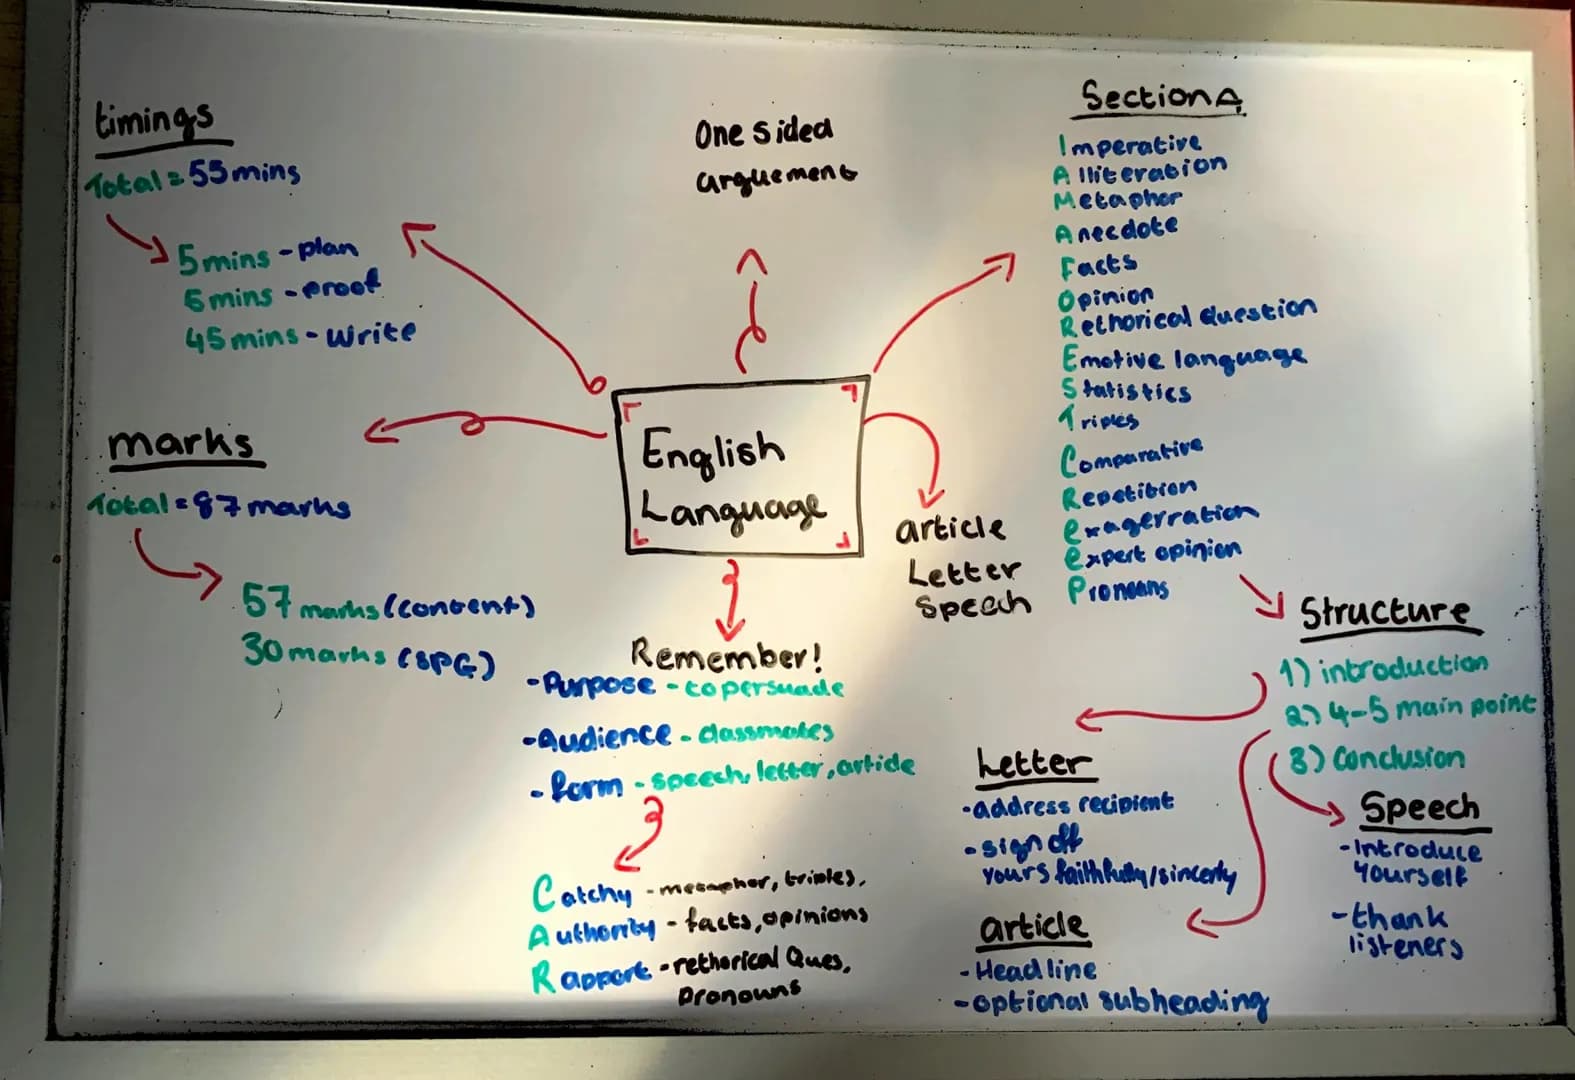 timings
Total = 55 mins
5 mins - plan
5 mins - proof
45 mins - write
marks
Total = 87 marks
57 marks (content)
30 marks (SPG)
One sided
arguement
English
Language
article
Letter
Speech
Remember!
- Purpose - to persuade
- Audience - classmates
- form - speech, letter, article
Catchy - metaphor, triples,
Authority - facts, opinions
Rapport - rethorical Ques,
pronouns
Section A
Imperative
Alliteration
Metaphor
Anecdote
Facts
Opinion
Rethorical Question
Emotive language
Statistics
Triples
Comparative
Repetition
exagerration
expert opinion
Pronouns
Structure
1) introduction
2) 4-5 main point
3) Conclusion
Letter
- address recipient
- sign off
yours faithfully/sincerly
article
- Headline
- optional subheading
Speech
- Introduce
yourself
- thank
listeners